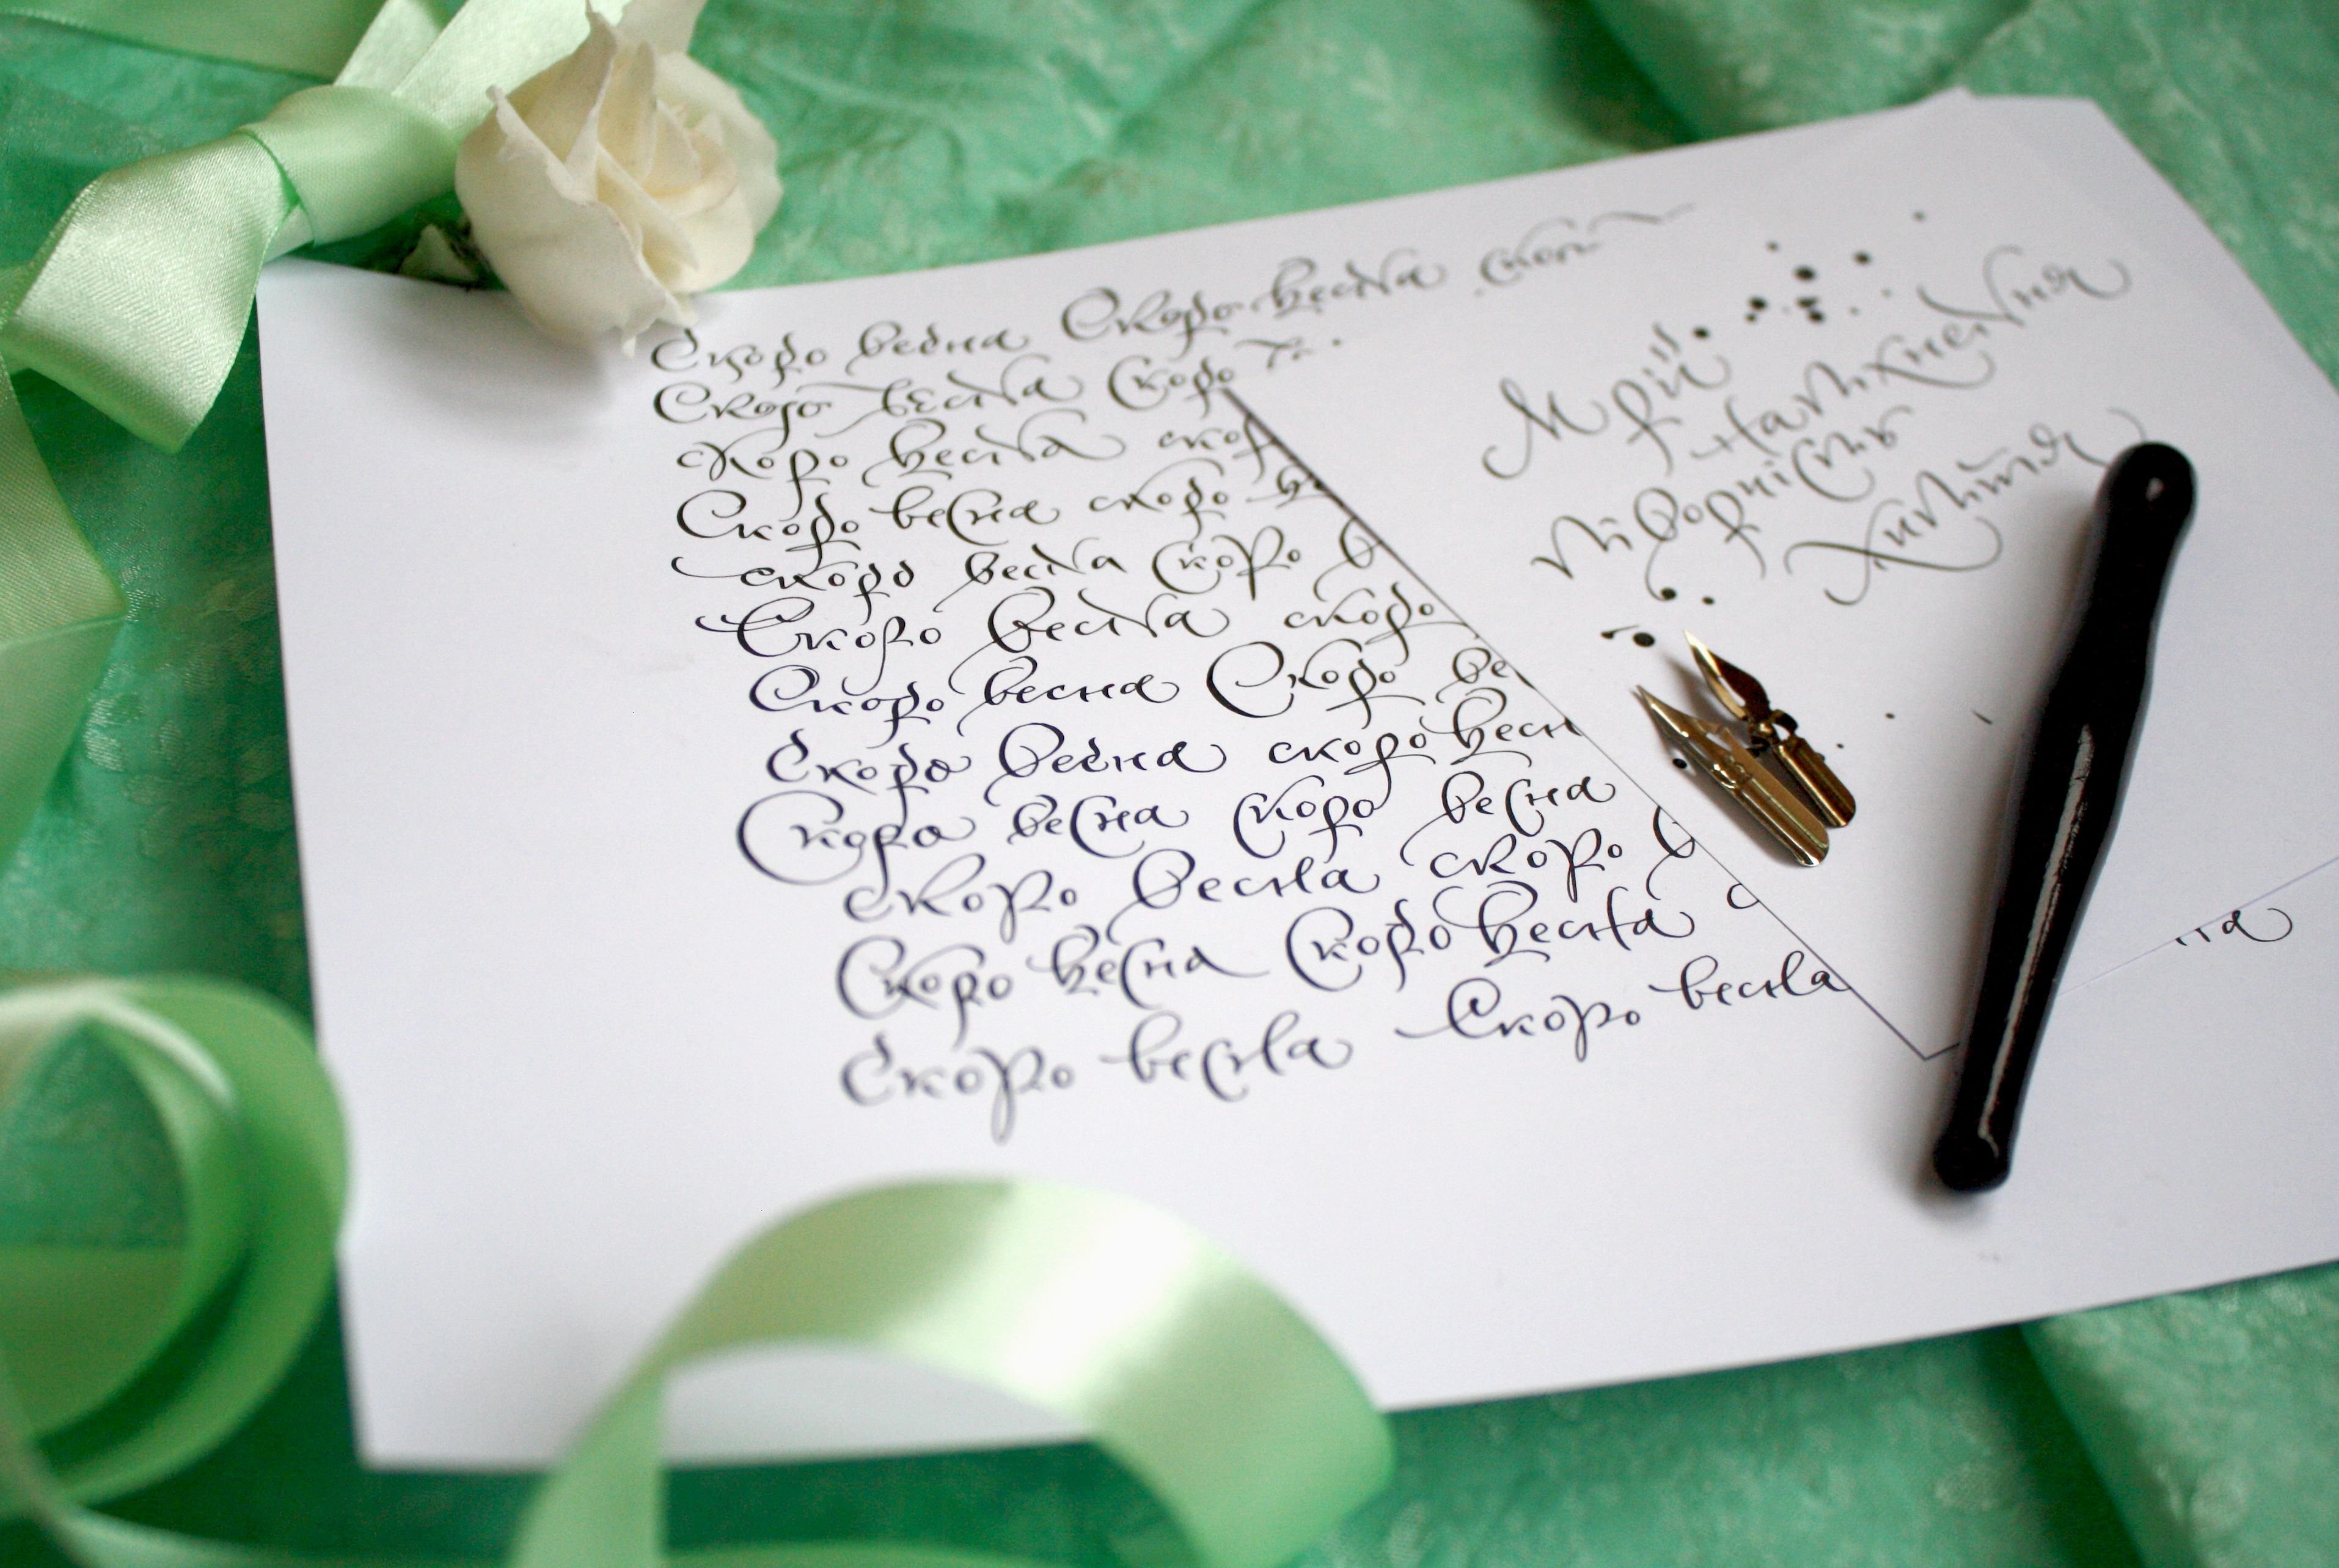 Скоро весна Скоро весна скоро
Скоро весна Скоро
скоро весна скор
Скоро весна скоро в
скоро весна Скоро в
Скоро весна скоро
Скоро весна Скоро ве
Скоро весна скоро весн
Скоро весна Скоро весна
скоро весна скоро в
Скоро весна Скоро весна с
Скоро весна Скоро весна
Мрії
Натхнення
на